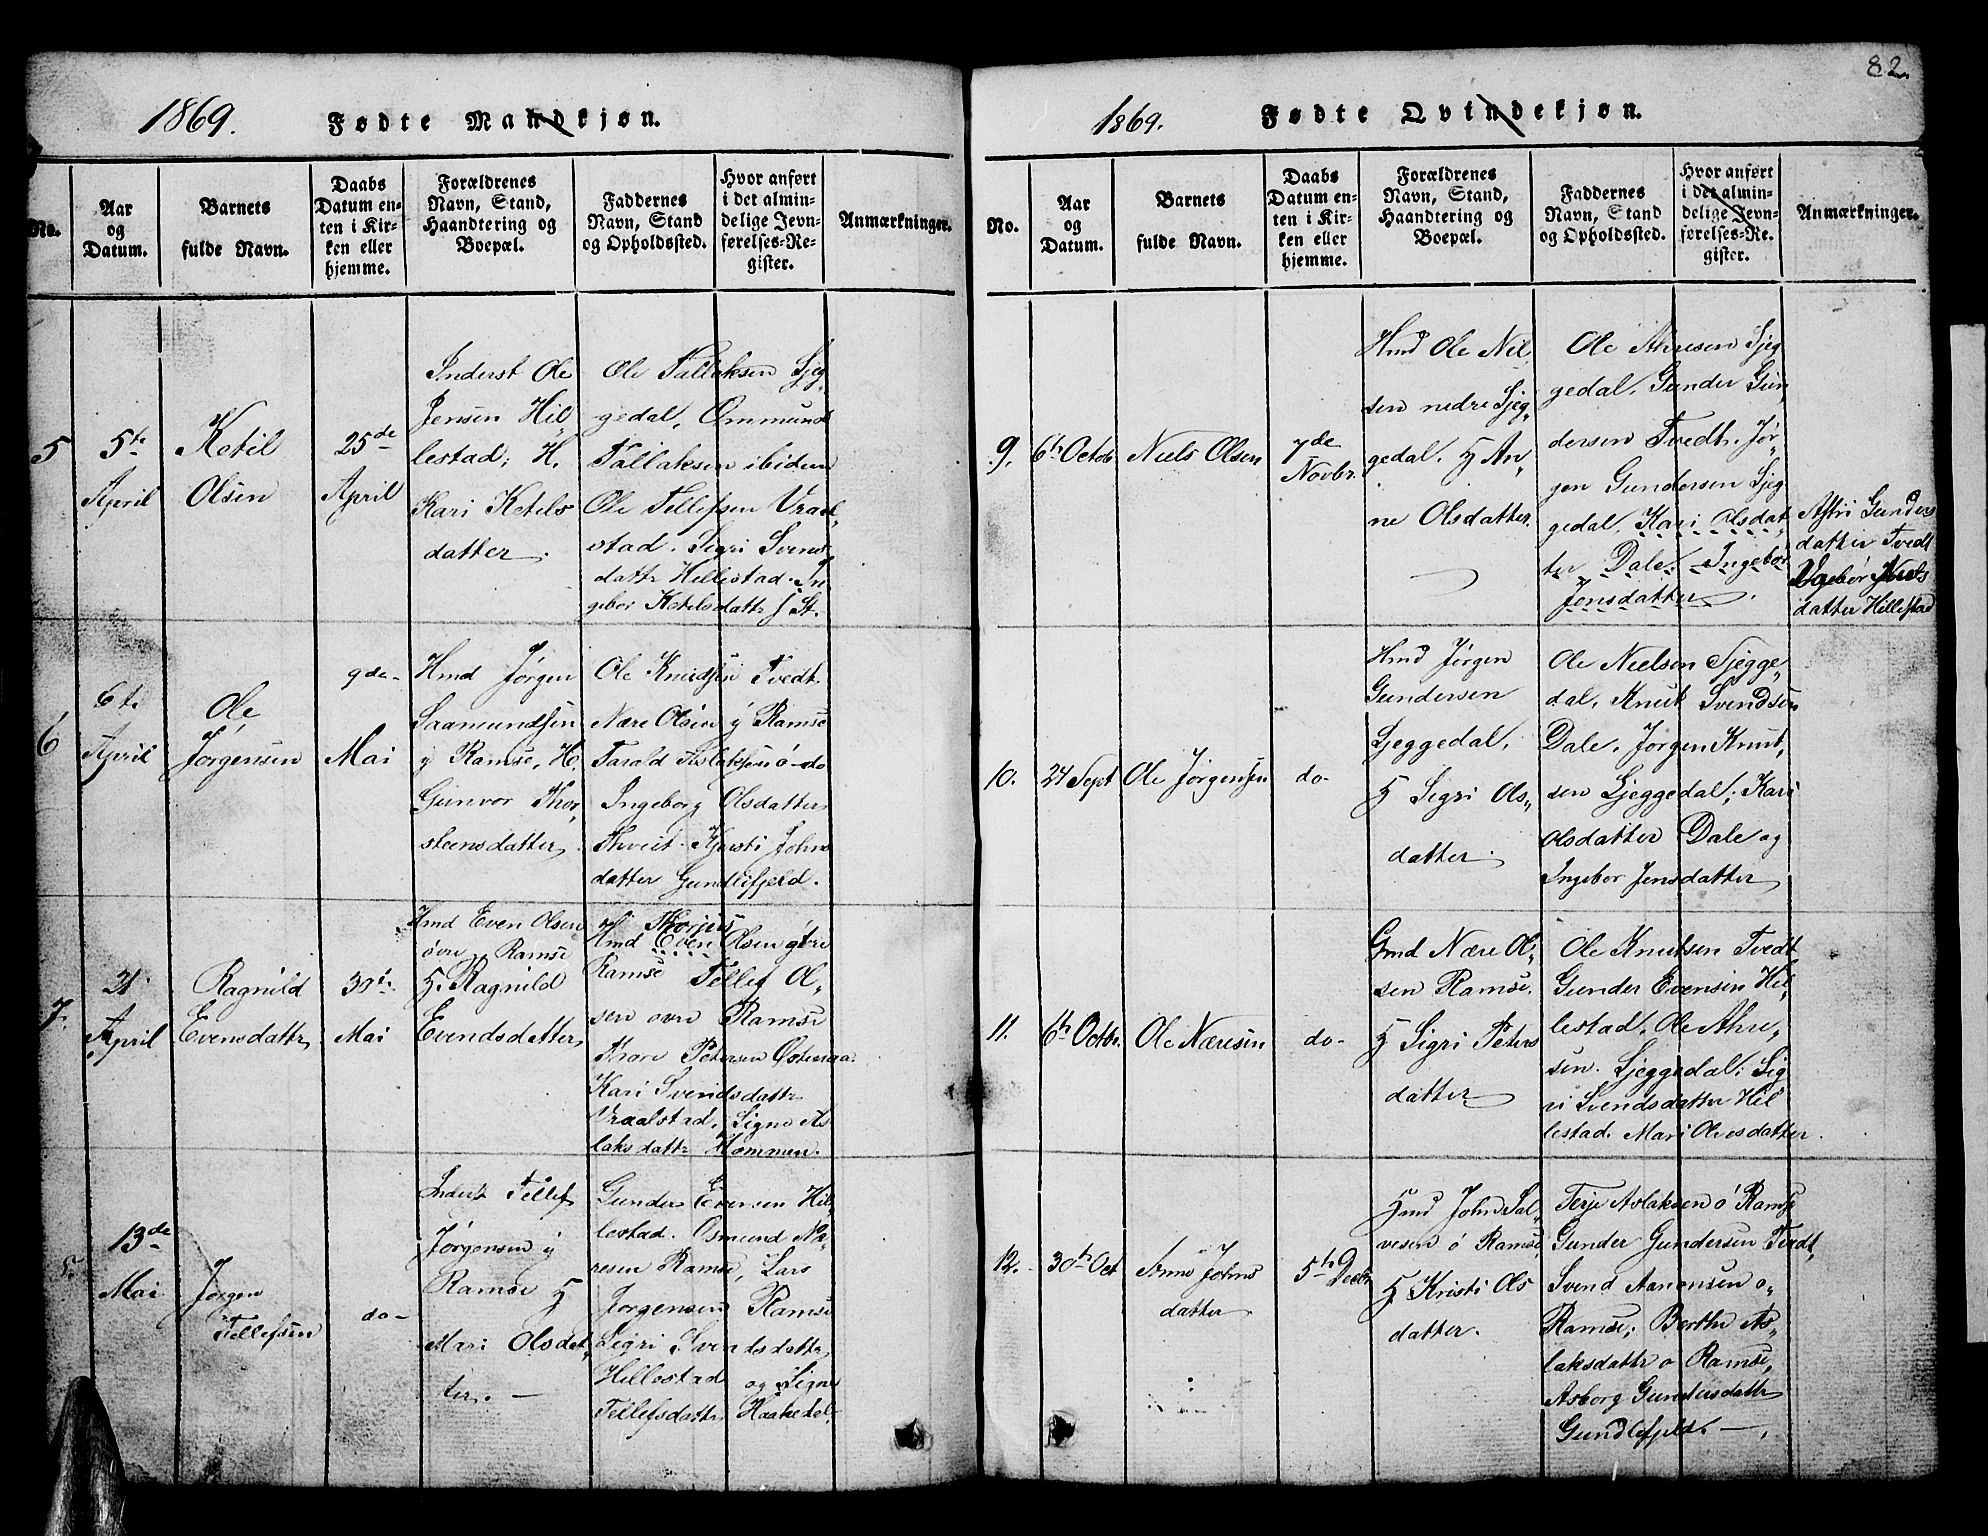 82.
1869.
Fødte Mandkjøn.
No.
Aar
og
Datum.
Barnets
fulde Navn.
Daabs
Datum en-
ten i Kir-
ken eller
hjemme.
Forældrenes
Navn, Stand,
Haandtering og
Boepæl.
Faddernes
Navn, Stand
og Opholdssted.
Hvor anført
i det almin-
delige Jevn-
førelses-Re-
gister.
Anmærkninger.
5
5te
April
Ketil
Olsen
25de
April
Inderst Ole
Jensen Hil,
lestad; H.
Kari Ketels
datter.
Ole Tallaksen Sjeg
gedal, Ommund
Tallaksen ibidem
Ole Tellefsen Vraal,
stad. Sigri Svens,
dattr Hillestad. In
gebor Ketelsdattr f St.
6
6te
April
Ole
Jørgensen
9de
Mai
Hmd Jørgen
Saamundsen
y Ramse, H,
Gunvor Thor,
steensdatter
Ole Knudsen Tvedt
Nære Olsen y Ramse
Tarald Aslaksen ö do
Ingeborg Olsdatter
Thveit. Kjersti Johns
datter Gundlifjeld.
7.
21
April
Ragnild
Evensdattr
30te
Mai
Hmd Even Olsen
øvre Ramse
H. Ragnild
Evendsdatter
Thorjus
Hmd Even Olsen ytre
Ramse Tellef Ol,
sen ovre Ramse
Thore Petersen Ostenaa
Kari Svendsdattr
Vraalstad, Signe As
laksdattr Hommen.
8.
13de
Mai
Jørgen
Tellefsen
do
Inderst Tellef
Jørgensen y
Ramse H
Mari Olsdat,
ter.
Gunder Evensen Hil,
lestad. Osmund Næ,
resen Ramse, Lars
Jørgensen Ramse
Sigri Svendsdattr
Hillestad og Signe
Tellefsdattr Haakedal
1869.
Fødte Qvindekjøn.
No.
Aar
og
Datum.
Barnets
fulde Navn.
Daabs
Datum en-
ten i Kir-
ken eller
hjemme.
Forældrenes
Navn, Stand,
Haandtering og
Boepæl.
Faddernes
Navn, Stand
og Opholdssted.
Hvor anført
i det almin-
delige Jevn-
førelses-Re-
gister.
Anmærkninger.
9.
6te Octob
Niels Olsen
7de
Novbr.
Hmd Ole Niel,
sen nedre Sjeg,
gedal. H An,
ne Olsdatter.
Ole Ahresen Sjeg
gedal, Gunder Gun,
dersen Tvedt. Jør,
gen Gundersen Sjeg
gedal, Kari Olsdat,
ter Dale. Ingebor
Jensdatter.
Astri Gunders
datter Tvedt
Ingebor Niels
datter Hillestad
10.
24 Sept
Ole Jørgensen
do
Hmd Jørgen
Gundersen
Sjeggedal,
H Sigri Ols,
datter.
Ole Nielsen Sjegge,
dal, Knut Svendsen
Dale, Jørgen Knut,
sen Sjeggedal; Kari
Olsdatter Dale og
Ingebor Jensdatter
11.
6te Octbr.
Ole Næresen
do
Gmd Nære Ol,
sen Ramse.
H Sigri Peters
datter
Ole Knutsen Tvedt
Gunder Evensen Hil,
lestad, Ole Ahre,
sen. Sjeggedal; Sig
ri Svendsdatter Hil
lestad. Mari Olvesdatter.
12.
30te Oct
Anne Johns
datter
5te Decbr
Hmd John Sal,
vesen ö Ramse
H Kristi Ols
datter.
Terje Aslaksen ö Ramse
Gunder Gundersen Tvedt,
Svend Aanonsen o,
Ramse; Berthe As,
laksdattr o Ramse,
Asborg Gundersdattr
Gundlefjeld.